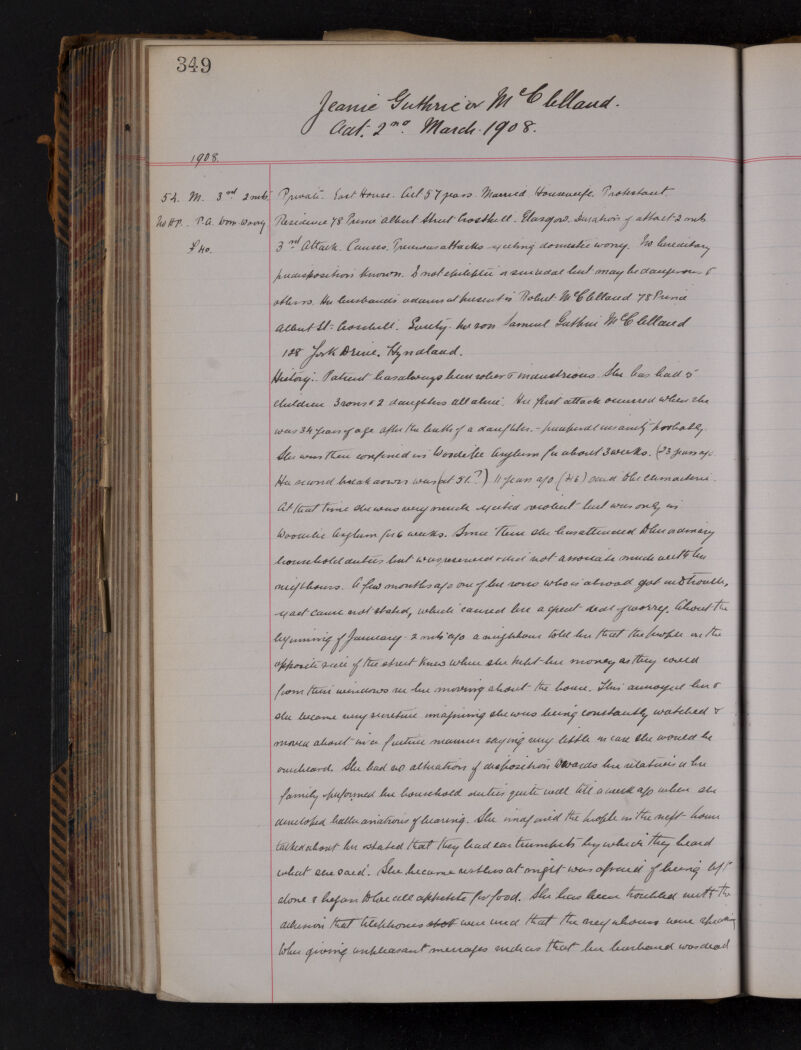 349
Jeanie Guthrie or McClelland.
Adt. 2nd. March 1908.
1908.
57. M. 3rd 2 mths. Private. East House. Aet 57 years. Married. Housewife. Protestant
No H.P. P.A. Dom. Worry Residence 78 Prince Albert Street Crosshill. Glasgow. Duration of attack 2 mths
£40. 3rd Attack. Causes. Previous attacks - exciting domestic worry. No hereditary
predisposition known. Is not epileptic or suicidal but may be dangerous to
others. Her husband's address at present is Robert McClelland 78 Prince
Albert St. Crosshill. Surety. her son Samuel Guthrie McClelland
128 York Drive. Hyndland.
History. Patient has always been sober & industrious. She has had 5
children 3 sons & 2 daughters all alive. Her first attack occurred when she
was 34 years of age after the birth of a daughter. - puerperal insanity probably.
She was then confined in Woodilee Asylum for about 3 weeks. (23 years ago
Her second breakdown was (at 51?) 11 years ago (46) and the climacteric.
At that time she was very much excited violent but was only in
Woodilee Asylum for 6 weeks. Since then she has attended to her ordinary
household duties but was reserved & did not associate much with her
neighbours. A few months ago one of her sons who is abroad got into trouble,
exact cause not stated, which caused her a great deal of worry. About the
beginning of January - 2 mths ago a neighbour told her that the people on the
opposite side of the street knew where she kept her money as they could
from their windows see her moving about the house. This annoyed her &
she became very secretive imagining she was being constantly watched &
moved about in a furtive manner saying very little in case she would be
overheard. She had no alteration of disposition towards her relatives or her
family & performed her household duties quite well till a week ago when she
developed hallucinations of hearing. She imagined the people in the next house
talked about her & stated that they had ear trumpets by which they heard
what she said. She became restless at night was afraid of being left
alone & began to lose all appetite for food. She has been troubled with the
delusion that telephones were used that the neighbours were speaking
to her giving unpleasant messages such as that her husband was dead